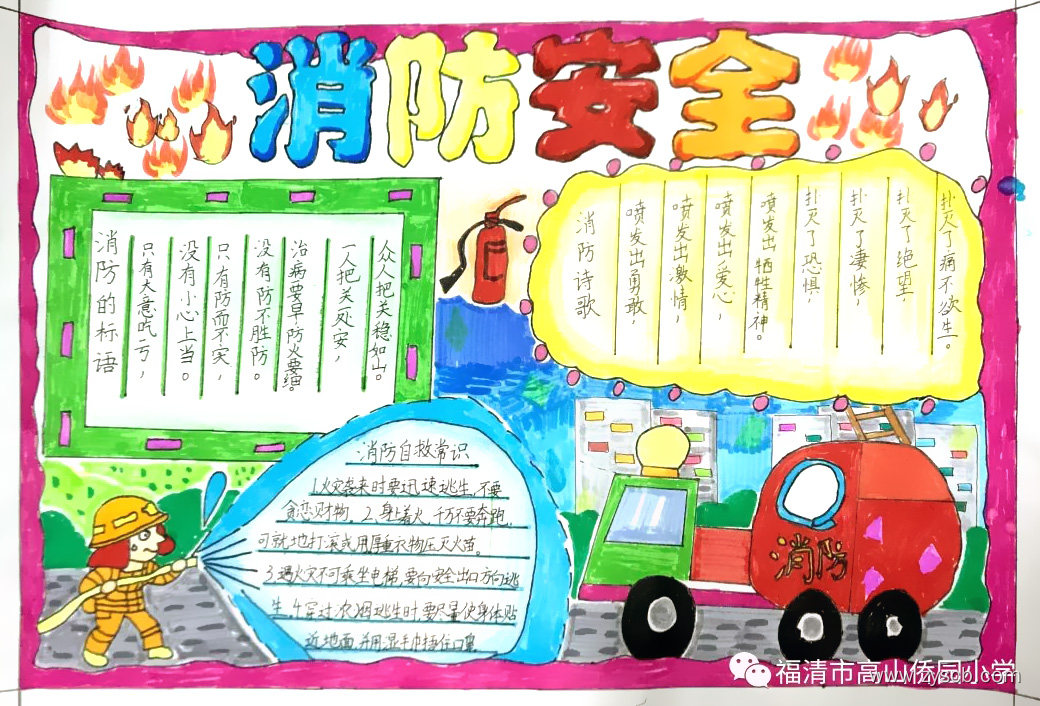 消防安全
消防的标语
只有大意吃亏,
没有小心上当。
只有防而不实,
没有防不胜防。
治病要早防火要细。
一人把关一处安,
众人把关稳如山。
消防诗歌
喷发出勇敢,
喷发出激情,
喷发出爱心,
喷发出牺牲精神。
扑灭了恐惧,
扑灭了凄惨,
扑灭了绝望
扑灭了病不欲生。
消防自救常识
1.火灾袭来时要迅速逃生,不要
贪恋财物。2、身上着火,千万不要奔跑,
可就地打滚或用厚重衣物压灭火苗。
3.遇火灾不可乘坐电梯,要向安全出口方向逃
生.4.穿过浓烟逃生时,要尽量使身体贴
近地面,并用湿毛巾捂住口鼻
消防
福清市高山侨园小学